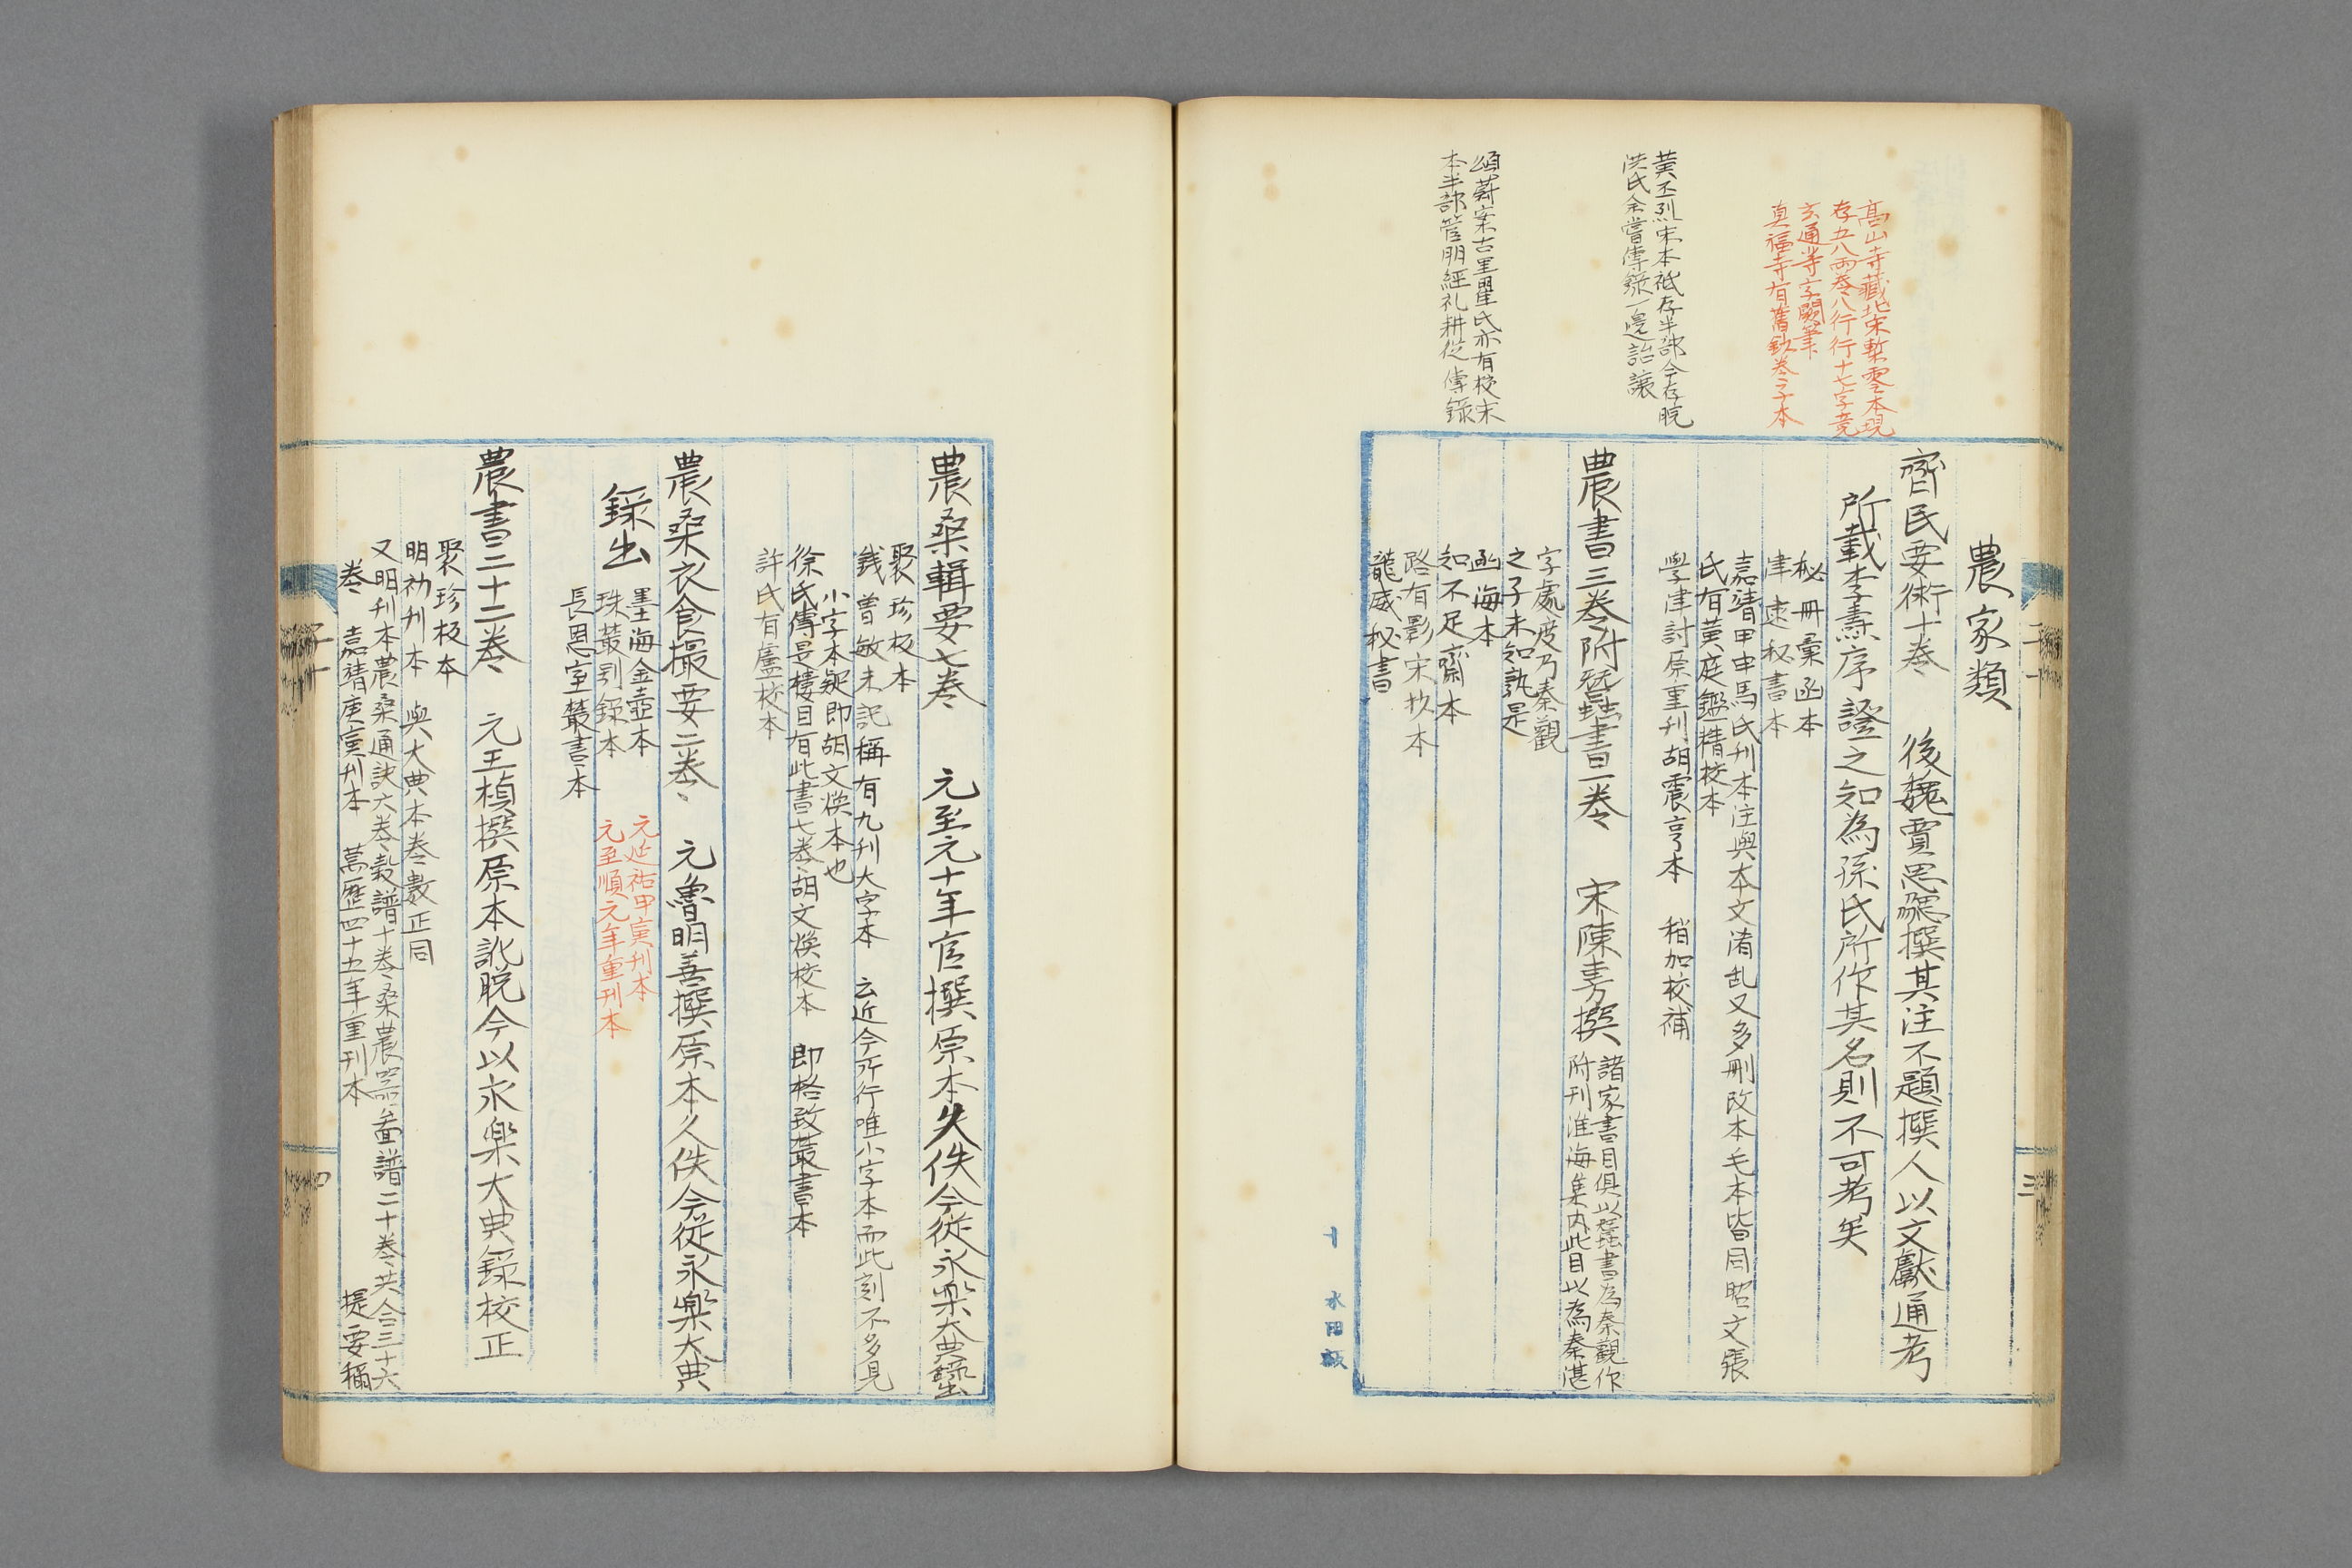 高山寺藏北宋槧零本現
存五八兩卷八行行十七字竟
玄通等字闕筆
真福寺有舊鈔卷子本
黃丕烈宋本祗存半部今存脘
洪氏余嘗傳錄一邊詒讓
頌蔚案古里瞿氏亦有校宋
本半部管明經礼耕從傳錄
農家類
齊民要術十卷 後魏賈思勰撰其注不題撰人以文獻通考
所載李燾序證之知為孫氏所作其名則不可考矣
秘冊彙函本
津逮秘書本
嘉靖甲申馬氏刊本注與本文淆乱又多刪改本毛本皆同昭文張
氏有黃庭鑑精校本
學津討原重刊胡震亨本 稍加校補
農書三卷附蠶書一卷 宋陳旉撰
諸家書目俱以蠶書為秦觀作
附刊淮海集內此目以為秦湛
字處度乃秦觀
之子未知孰是
函海本
知不足齋本
路有影宋抄本
龍威秘書
二十
三
十 水田
農桑輯要七卷 元至元十年官撰原本久佚今從永樂大典錄出
聚珍板本
錢曾敏求記稱有九刊大字本 云近今所行唯小字本而此刻不多見
小字本疑即胡文煥本也
徐氏傳是樓目有此書七卷胡文煥校本 即格致叢書本
許氏有盧校本
農桑衣食撮要二卷 元魯明善撰原本久佚今從永樂大典
錄出
墨海金壺本
珠叢別錄本
長恩室叢書本
元延祐甲寅刊本
元至順元年重刊本
農書二十二卷 元王楨撰原本訛脫今以永樂大典錄校正
聚珍板本
明初刊本 與大典本卷數正同
又明刊本農桑通訣六卷穀譜十卷桑農器圖譜二十卷共合三十六
卷 嘉靖庚寅刊本 萬歷四十五年重刊本 提要稱
子十
四